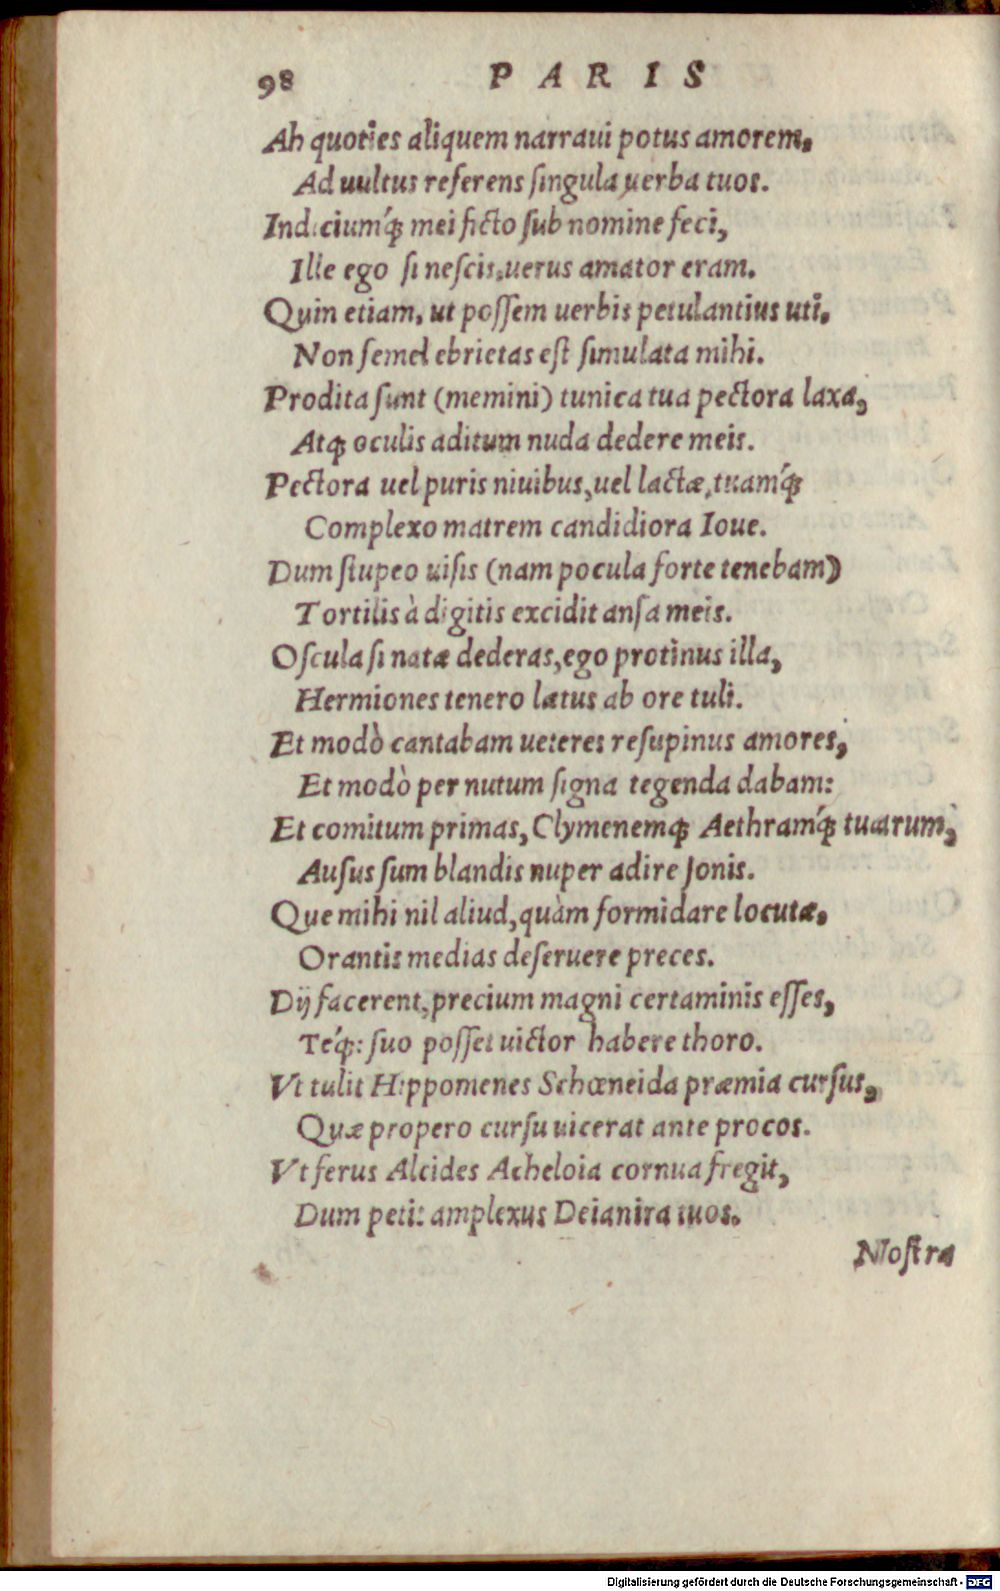 98 PARIS
Ah quoties aliquem narraui potus amorem,
Ad uultus referens ſingula uerba tuos.
Indiciumq́ꝫ mei ficto ſub nomine feci,
Ille ego ſi neſcis, uerus amator eram.
Quin etiam, ut poſſem uerbis petulantius uti,
Non ſemel ebrietas eſt ſimulata mihi.
Prodita ſunt (memini) tunica tua pectora laxa,
Atqꝫ oculis aditum nuda dedere meis.
Pectora uel puris niuibus, uel lactæ, tuamq́ꝫ
Complexo matrem candidiora Ioue.
Dum ſtupeo uiſis (nam pocula forte tenebam)
Tortilis à digitis excidit anſa meis.
Oſcula ſi natæ dederas, ego protinus illa,
Hermiones tenero lætus ab ore tuli.
Et modò cantabam ueteres reſupinus amores,
Et modò per nutum ſigna tegenda dabam:
Et comitum primas, Clymenemqꝫ Aethramq́ꝫ tuarum,
Auſus ſum blandis nuper adire ſonis.
Que mihi nil aliud, quàm formidare locutæ,
Orantis medias deſeruere preces.
Dij facerent, precium magni certaminis eſſes,
Teq́ꝫ: ſuo poſſet uictor habere thoro.
Vt tulit Hippomenes Schœneida præmia curſus,
Quæ propero curſu uicerat ante procos.
Vt ferus Alcides Acheloia cornua fregit,
Dum petit amplexus Deianira tuos.
Noſtra
Digitalisierung gefördert durch die Deutsche Forschungsgemeinschaft - DFG